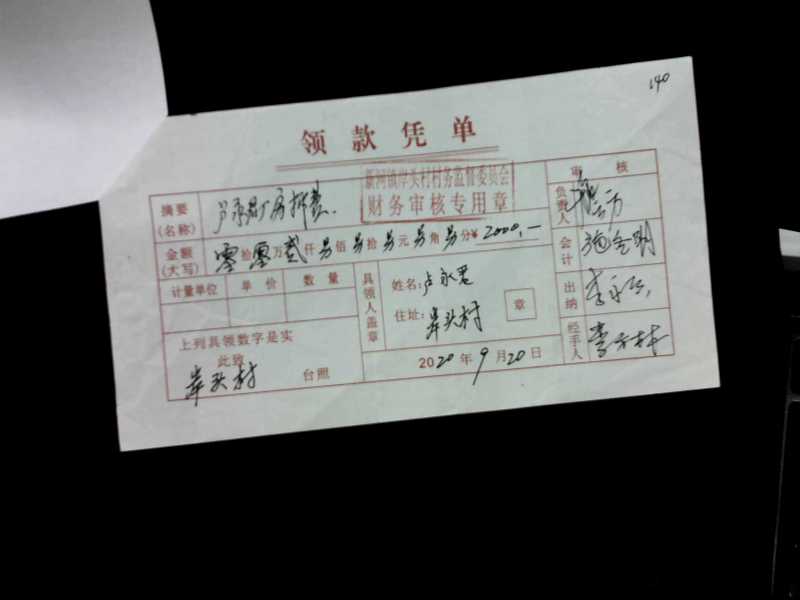 140
领款凭单
新河镇岸头村村务监督委员会
财务审核专用章
摘要
(名称)
金额
(大写)
零拾零万贰仟另佰另拾另元另角另分¥ 2000,—
计量单位 单价 数量
上列具领数字是实
此致
岸头村 台照
具领人盖章
姓名:卢永君
住址:岸头村
章
2020年9月20日
审核
负责人
会计
出纳
经手人